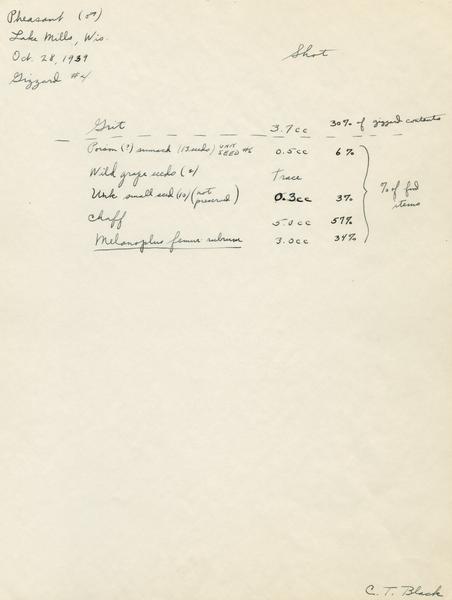 Pheasant (♂)
Lake Mills, Wis.
Oct. 28, 1939
Gizzard #4
Shot
Grit 3.7cc 30% of gizzard contents
Poison (?) sumach (13 seeds) UNK SEED #6 0.5cc 6%
Wild grape seeds (2) Trace
Unk small seed (10) (not preserved) 0.3cc 3%
Chaff 5.0cc 57%
Melanoplus femur-rubrum 3.0cc 34%
% of food items
C. T. Black